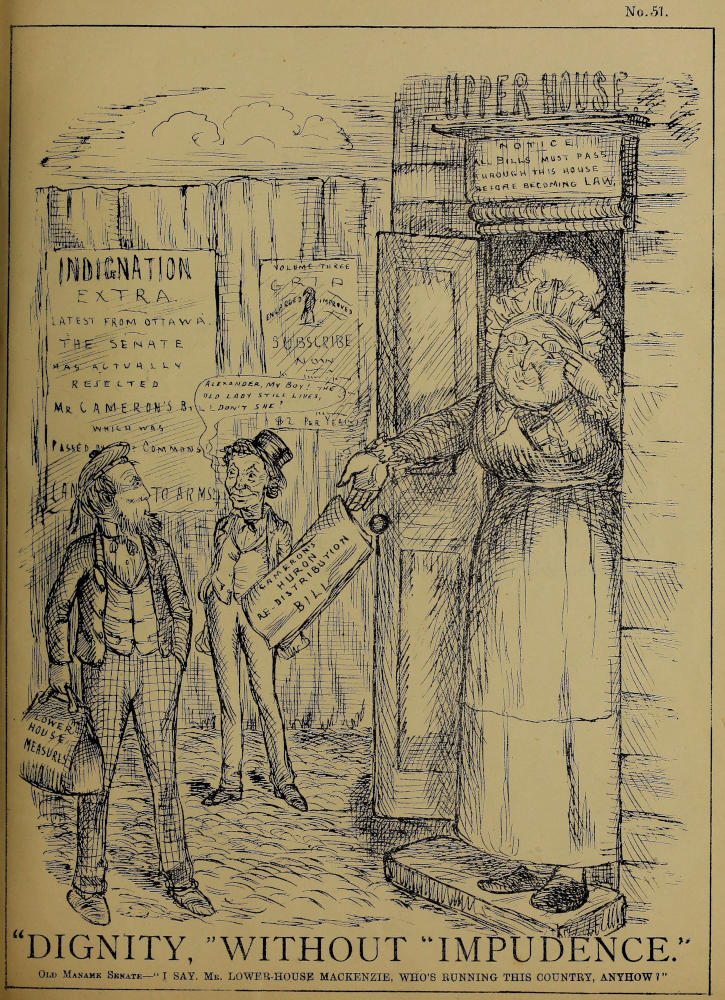 No. 51.
UPPER HOUSE.
NOTICE
AL BILLS MUST PASS
THROUGH THIS HOUSE
BEFORE BECOMING LAW.
INDIGNATION
EXTRA.
LATEST FROM OTTAWA.
THE SENATE
HAS ACTUALLY
REJECTED
MR CAMERON'S BILL
WHICH WAS
PASSED BY COMMONS
TO ARMS
VOLUME THREE
GRIP
ENLARGED IMPROVED
SUBSCRIBE
NOW
$2 PER YEAR
ALEXANDER, MY BOY! THE
OLD LADY STILL LIVES,
DON'T SHE?
CAMERONS
HURON
RE-DISTRIBUTION
BILL
LOWER
HOUSE
MEASURES
"DIGNITY," WITHOUT "IMPUDENCE."
OLD MANAME SENATE—"I SAY. MR. LOWER-HOUSE MACKENZIE, WHO'S RUNNING THIS COUNTRY, ANYHOW?"